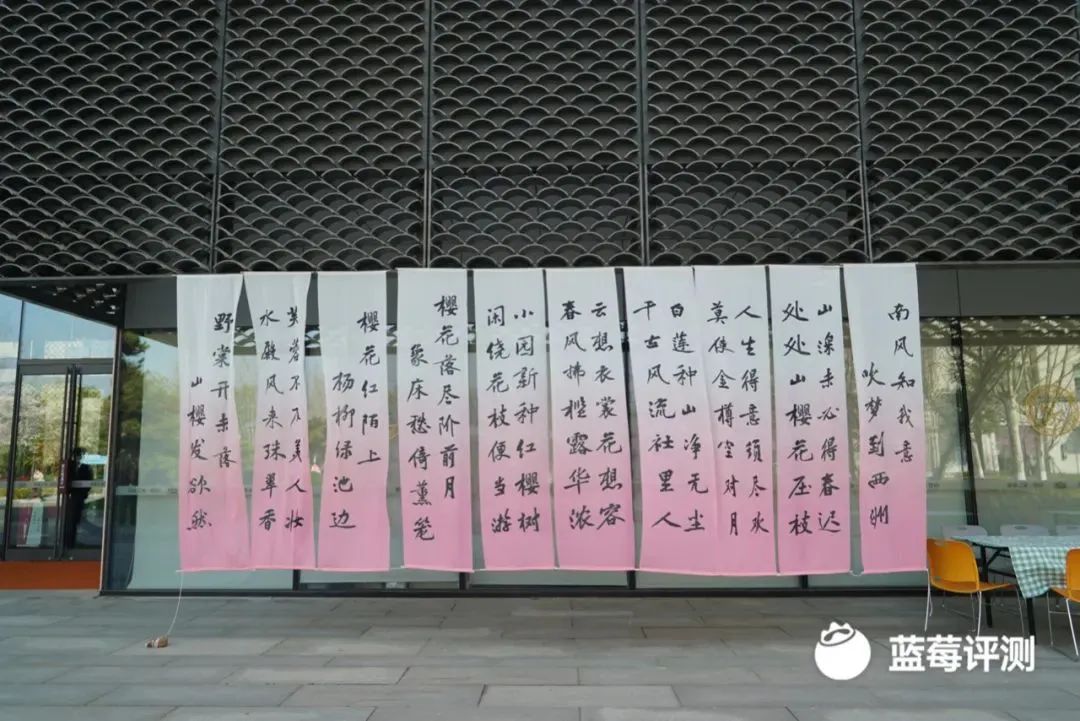 南风知我意
吹梦到西洲
山深未必得春迟
处处山樱花压枝
人生得意须尽欢
莫使金樽空对月
白莲种山净无尘
千古风流社里人
云想衣裳花想容
春风拂槛露华浓
小园新种红樱树
闲绕花枝便当游
樱花落尽阶前月
象床愁倚薰笼
樱花红陌上
杨柳绿池边
芙蓉不及美人妆
水殿风来珠翠香
野棠开未落
山樱发欲然
蓝莓评测